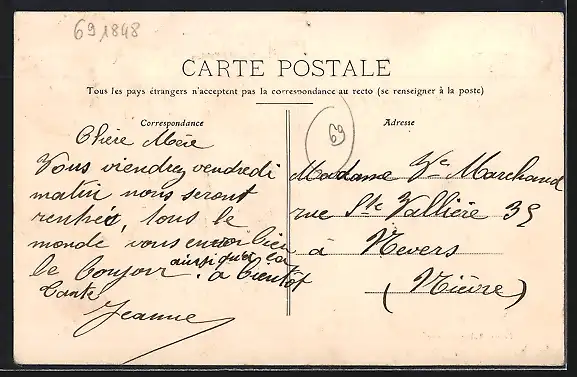 691848
CARTE POSTALE
Tous les pays étrangers n'acceptent pas la correspondance au recto (se renseigner à la poste)
Correspondance
Chère Mère
Vous viendrez vendredi
matin nous seront
rentrés, tous le
monde vous envoi bien
le bonjour ainsi que la
. à bientôt
tante
Jeanne
69
Adresse
Madame Ve Marchand
rue Ste Vallière 39
à Nevers
(Nièvre)